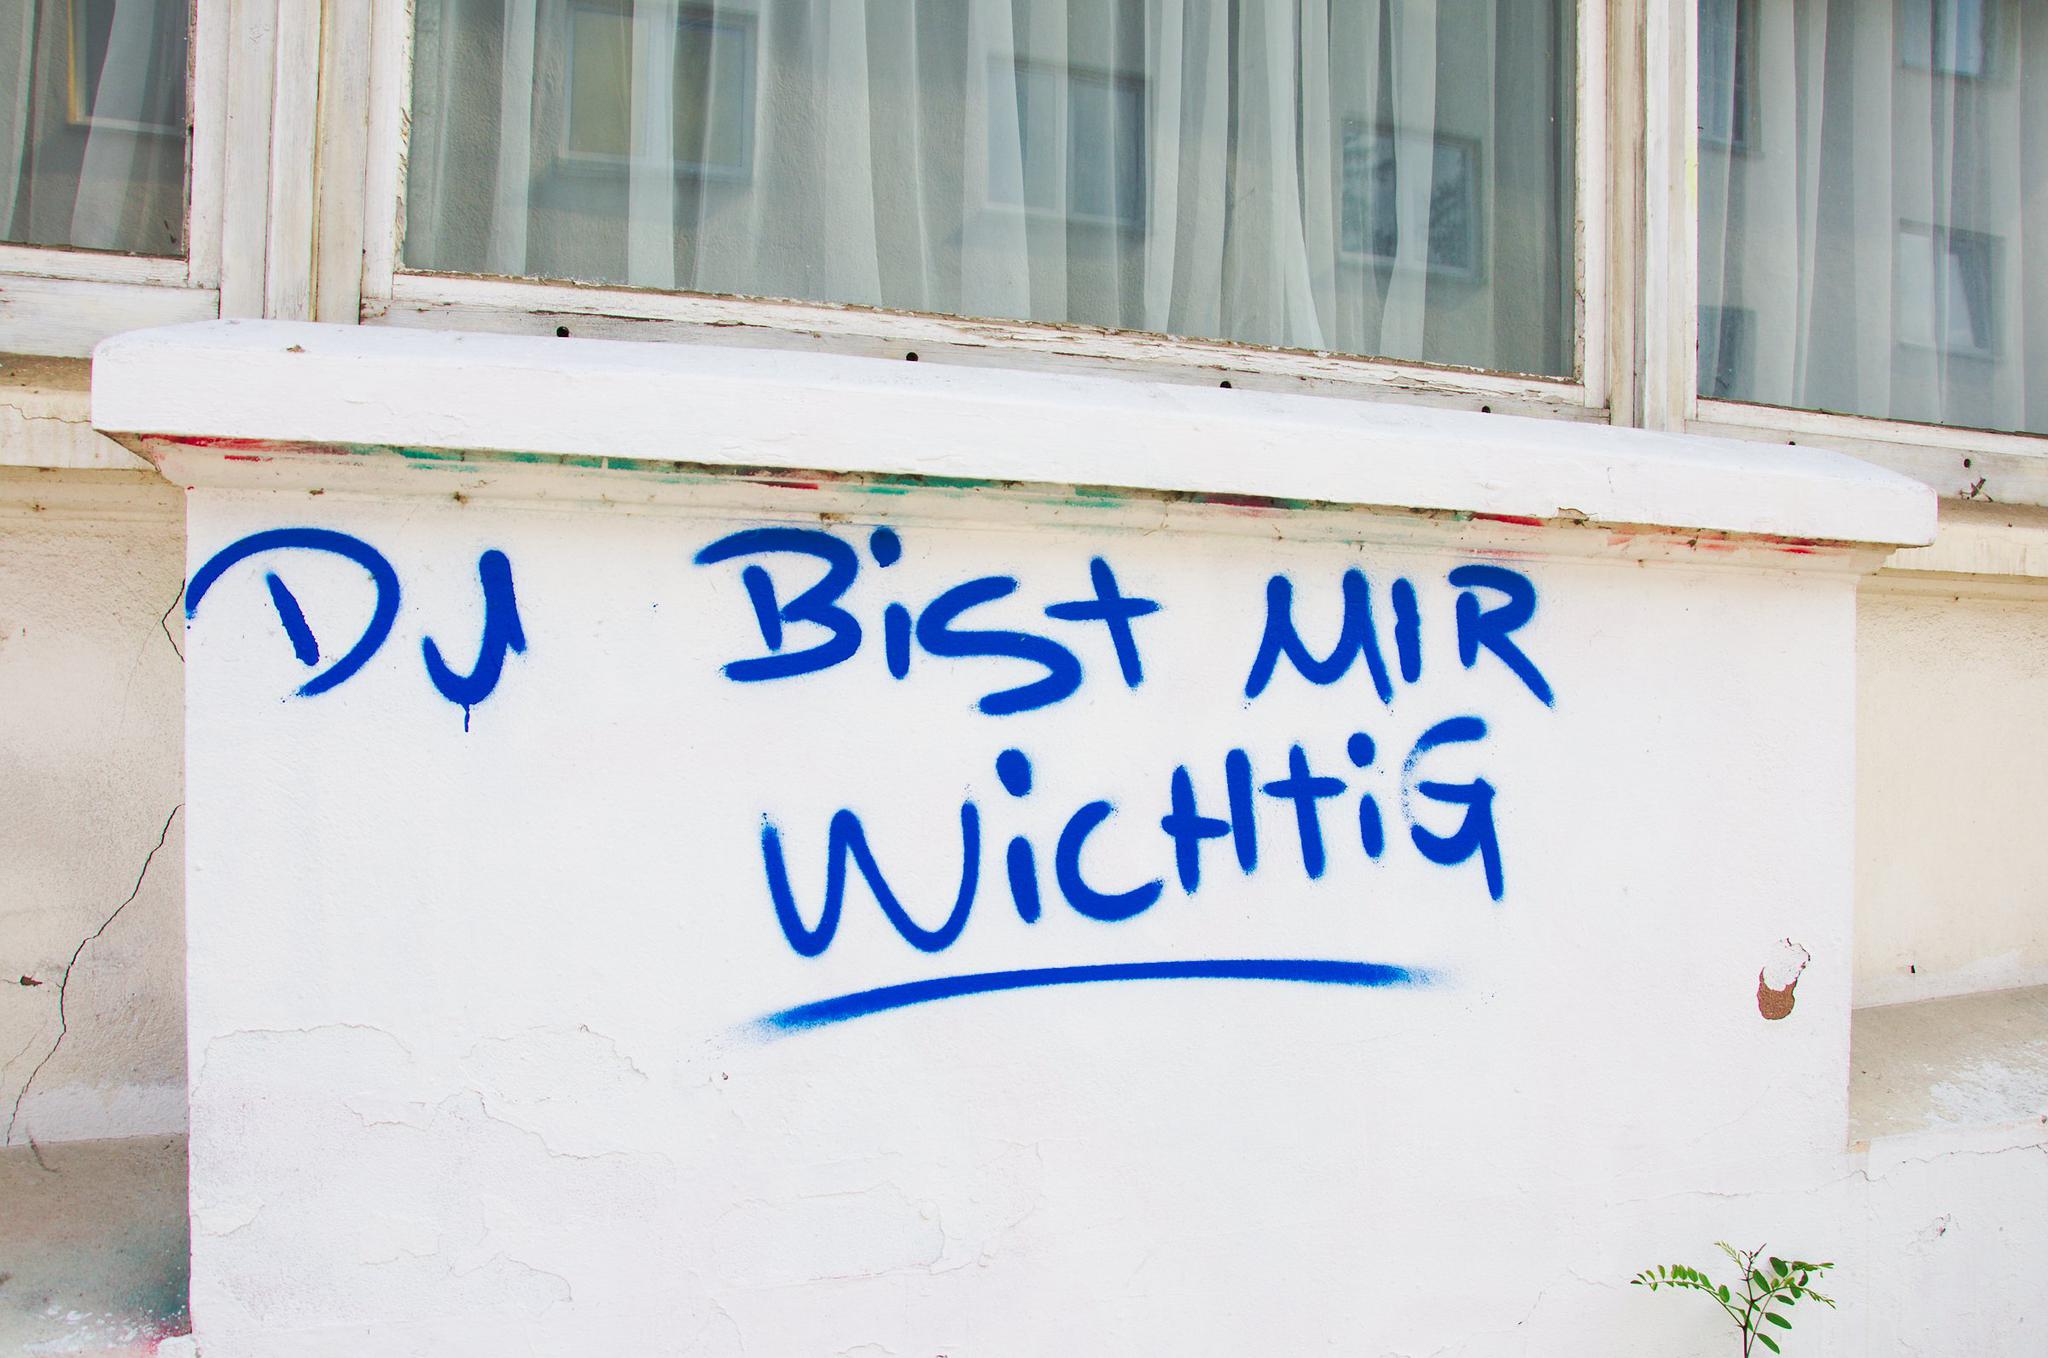 DU BiSt MIR
WiCHtiG